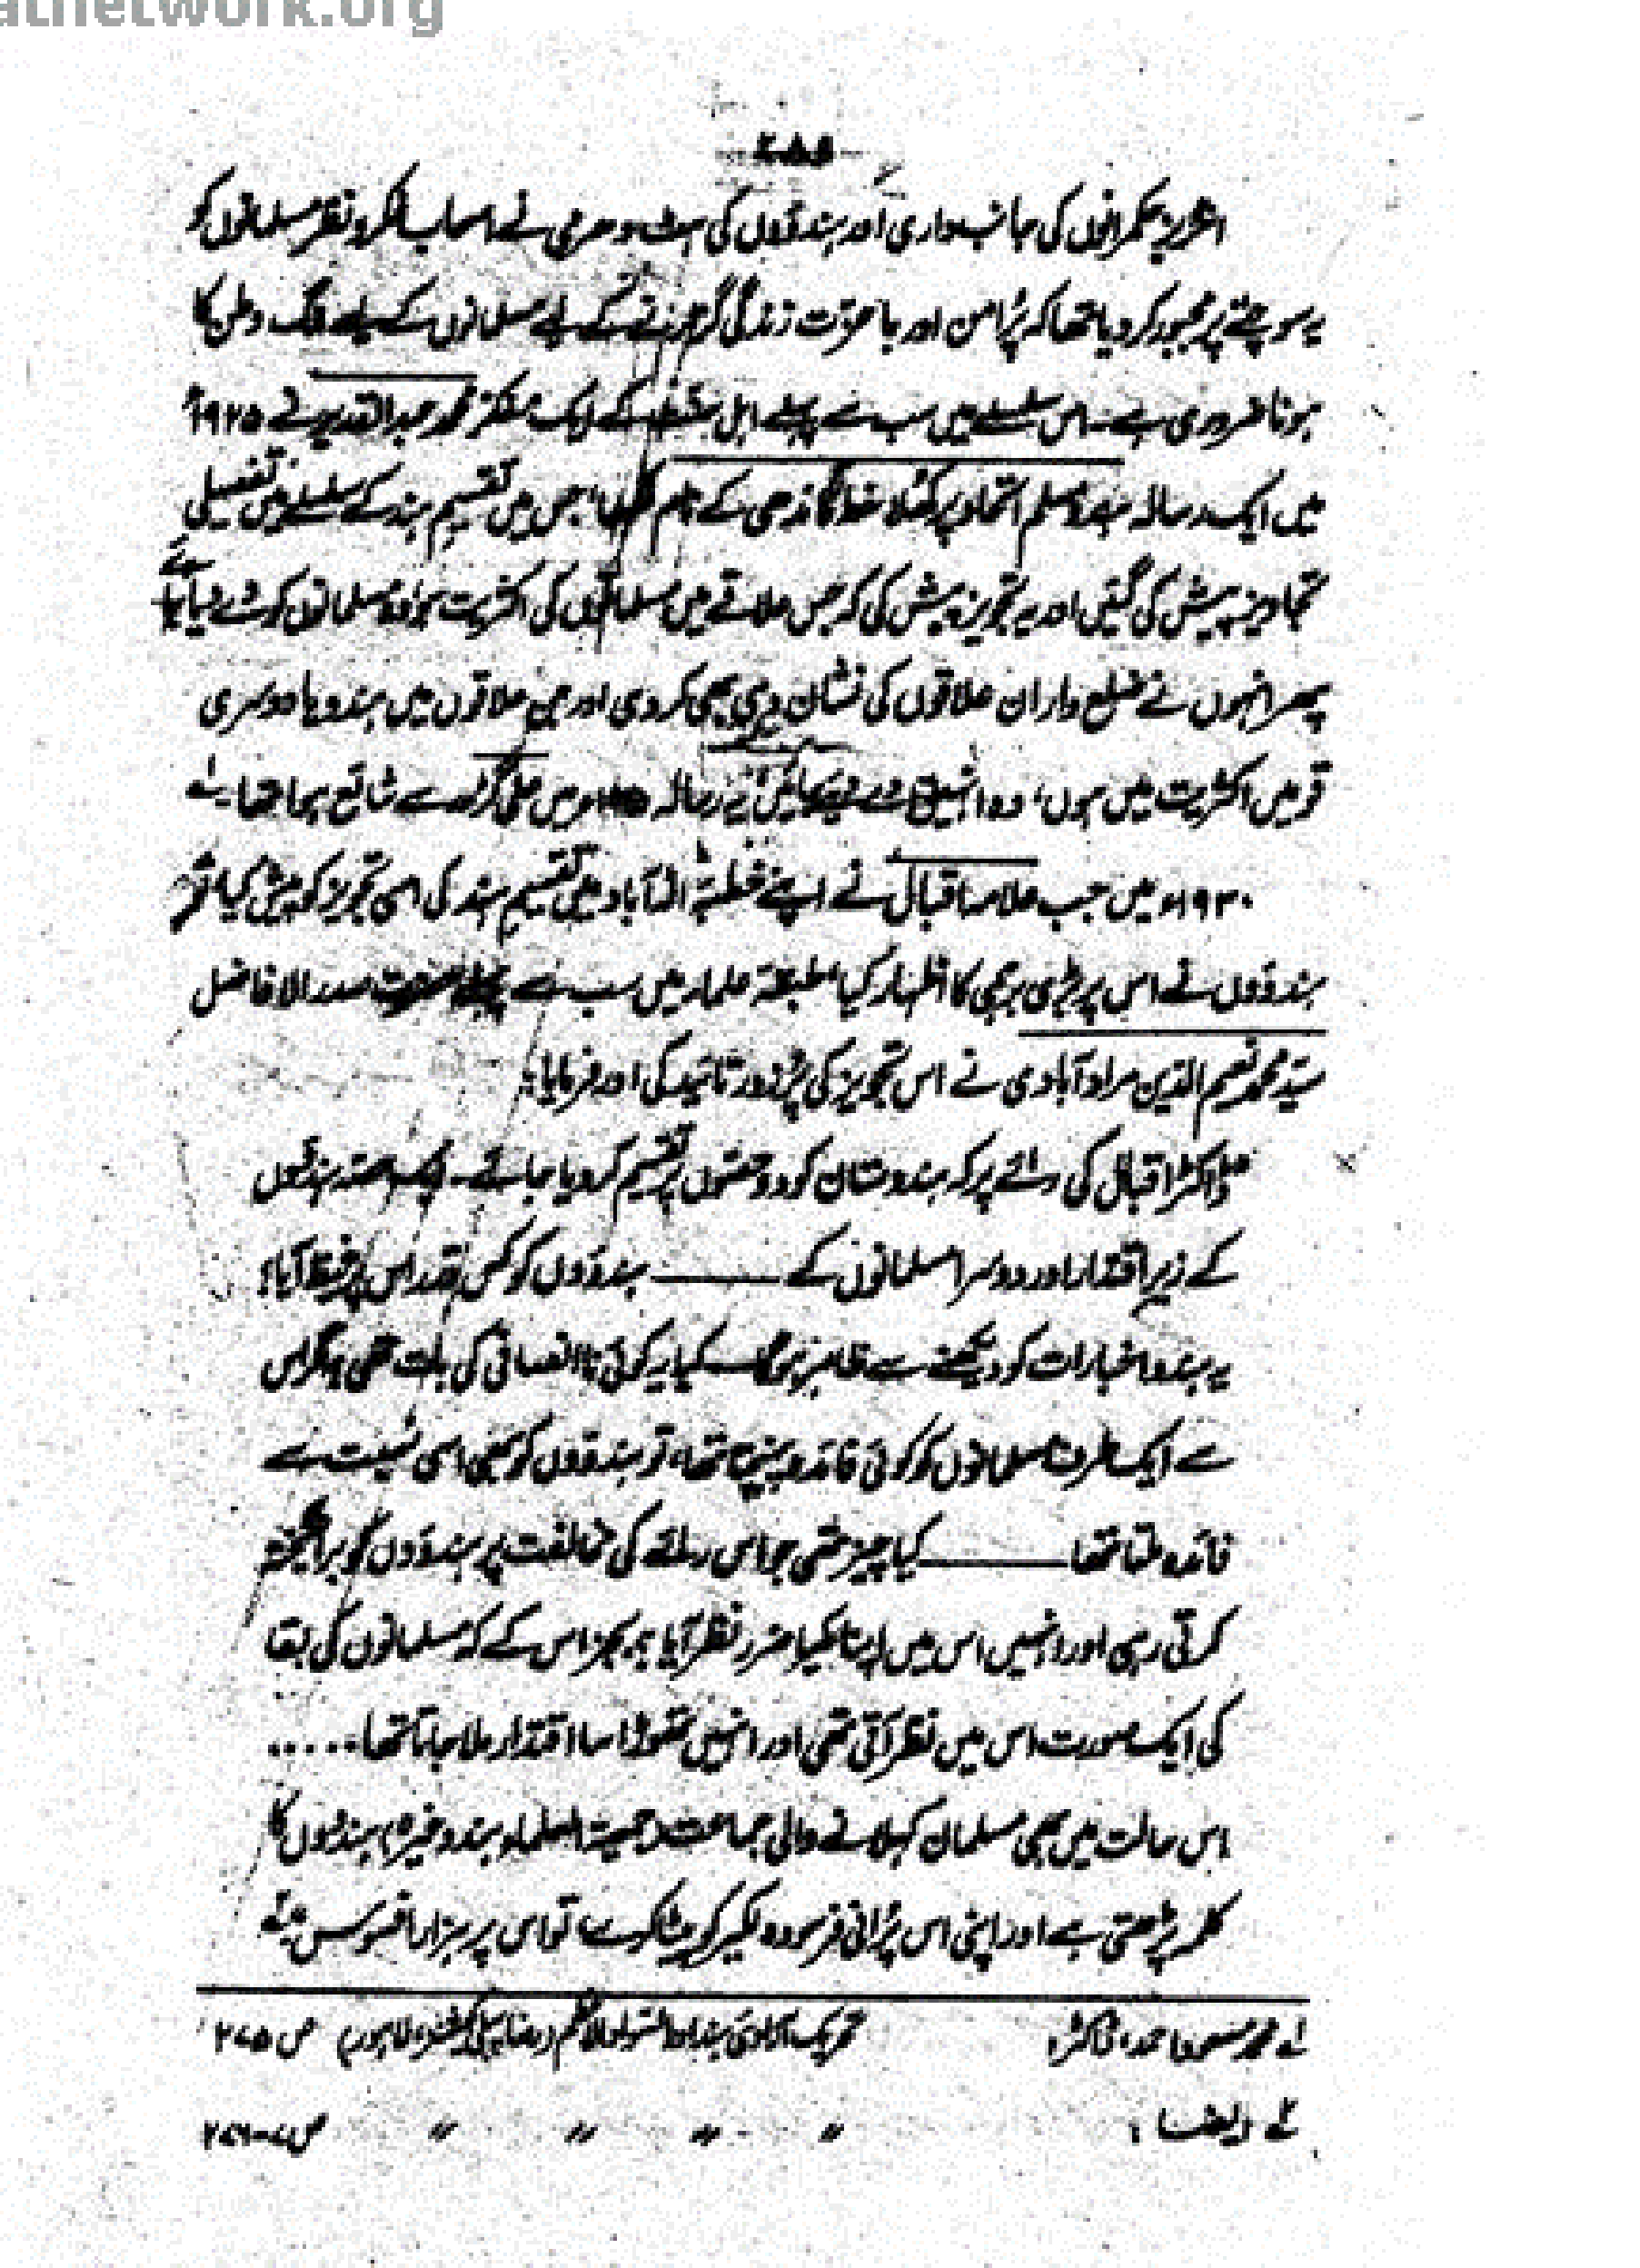 atnetwork.org
انگریز حکمرانوں کی جانب داری اور ہندوؤں کی ہٹ دھرمی نے اصحابِ فکر و نظر مسلمانوں کو
یہ سوچنے پر مجبور کر دیا تھا کہ پُرامن اور باعزت زندگی گزارنے کے لیے مسلمانوں کے لیے الگ وطن کا
ہونا ضروری ہے۔ اس سلسلے میں سب سے پہلے اہلِ سنت کے ایک مفکر محمد عبدالقدیر نے ۱۹۲۵ء
میں ایک رسالہ ہندو مسلم اتحاد پر کُھلا خط گاندھی کے نام لکھا، جس میں تقسیم ہند کے سلسلے میں تفصیلی
تجاویز پیش کی گئیں اور یہ تجویز پیش کی کہ جس علاقے میں مسلمانوں کی اکثریت ہو، وہ مسلمانوں کو دے دیا جائے
پھر انہوں نے ضلع وار ان علاقوں کی نشان دہی بھی کر دی اور جن علاقوں میں ہندو یا دوسری
قومیں اکثریت میں ہوں، وہ انہیں دے دیے جائیں، یہ رسالہ میں علی گڑھ سے شائع ہوا تھا۔ لے
۱۹۳۰ء میں جب علامہ اقبال نے اپنے خطبۂ الٰہ آباد میں تقسیم ہند کی اسی تجویز کو پیش کیا تو
ہندوؤں نے اس پر بڑی برہمی کا اظہار کیا، طبقۂ علماء میں سب سے پہلے حضرت صدر الافاضل
سید محمد نعیم الدین مراد آبادی نے اس تجویز کی پُرزور تائید کی اور فرمایا:
ڈاکٹر اقبال کی رائے پر کہ ہندوستان کو دو حصوں پر تقسیم کر دیا جائے۔ ایک حصہ ہندوؤں
کے زیر اقتدار اور دوسرا مسلمانوں کے ــــــــ ہندوؤں کو کس قدر اس پر غیظ آیا؟
یہ ہندو اخبارات کو دیکھنے سے ظاہر ہو گا۔ کیا یہ کوئی ناانصافی کی بات تھی، اگر اس
سے ایک طرف مسلمانوں کو کوئی فائدہ پہنچتا تھا، تو ہندوؤں کو بھی اسی نسبت سے
فائدہ ملتا تھا ــــــــ کیا چیز تھی جو اس رائے کی مخالفت پر ہندوؤں کو برانگیختہ
کرتی رہی اور انہیں اس میں اپنا کیا ضرر نظر آیا بجز اس کے کہ مسلمانوں کی بقا
کی ایک صورت اس میں نظر آتی تھی اور انہیں تھوڑا سا اقتدار ملا جاتا تھا.....
اس حالت میں بھی مسلمان کہلانے والی جماعت (جمعیۃ العلماء ہند وغیرہ) ہندوؤں کا
کلمہ پڑھتی ہے اور اپنی اس پُرانی فرسودہ لکیر کو پیٹا کرے، تو اس پر ہزار افسوس
لے محمد مسعود احمد، ڈاکٹر: تحریک آزادی ہند اور السواد الاعظم (رضا پبلی کیشنز، لاہور) ص
ایضاً: " " " " ص